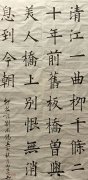 清江一曲柳千條二
十年前舊板橋曾與
美人橋上別恨無消
息到今朝